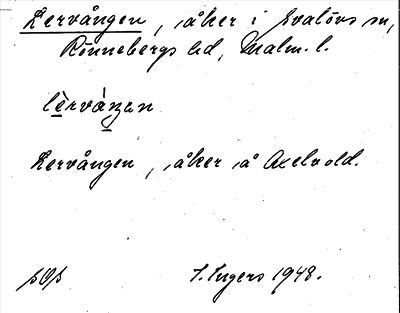 Lervången, åker i Svalövs sn,
Rönnebergs hd, Malm. l.
lèrvàŋen
Lervången, åker å Axelvold.
I. Ingers 1948.